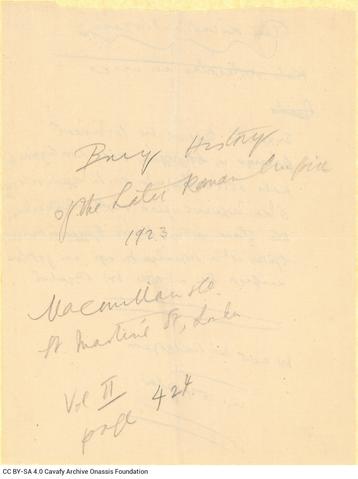 Bury History
of the Later Roman Empire
1923
Macmillan &Co.
St Martin's St, London
Vol II
page 424
CC BY-SA 4.0 Cavafy Archive Onassis Foundation